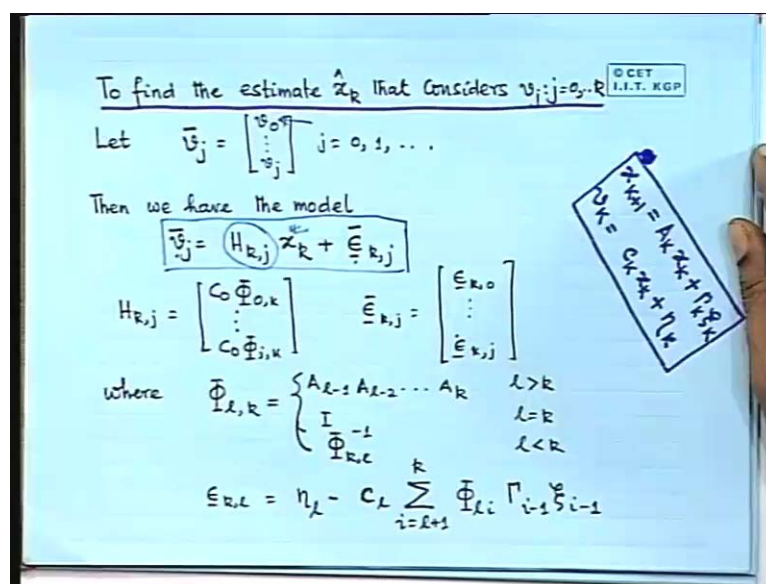 To find the estimate x̂_k that considers v_j : j=0,..k
© CET
I.I.T. KGP
Let v̄_j = [v_0 ⋮ v_j] j = 0, 1, ...
Then we have the model
v̄_j = H_{k,j} x_k + ε̄_{k,j}
H_{k,j} = [C_0 Φ_{0,k} ⋮ C_0 Φ_{j,k}] ε̄_{k,j} = [ε_{k,0} ⋮ ε_{k,j}]
where Φ_{l,k} = { A_{l-1} A_{l-2} ... A_k l>k
I l=k
Φ_{k,l}^{-1} l<k
ε_{k,l} = η_l - C_l Σ_{i=l+1}^{k} Φ_{li} Γ_{i-1} ξ_{i-1}
x_{k+1} = A_k x_k + Γ_k ξ_k
v_k = C_k x_k + η_k